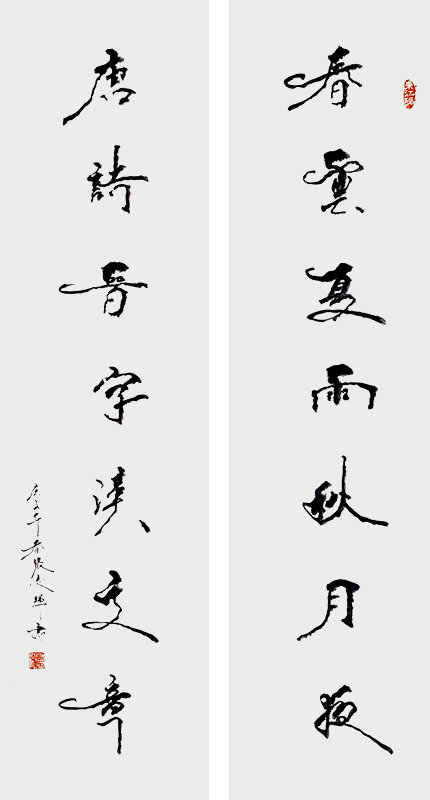 春雲夏雨秋月夜
唐詩晉字漢文章